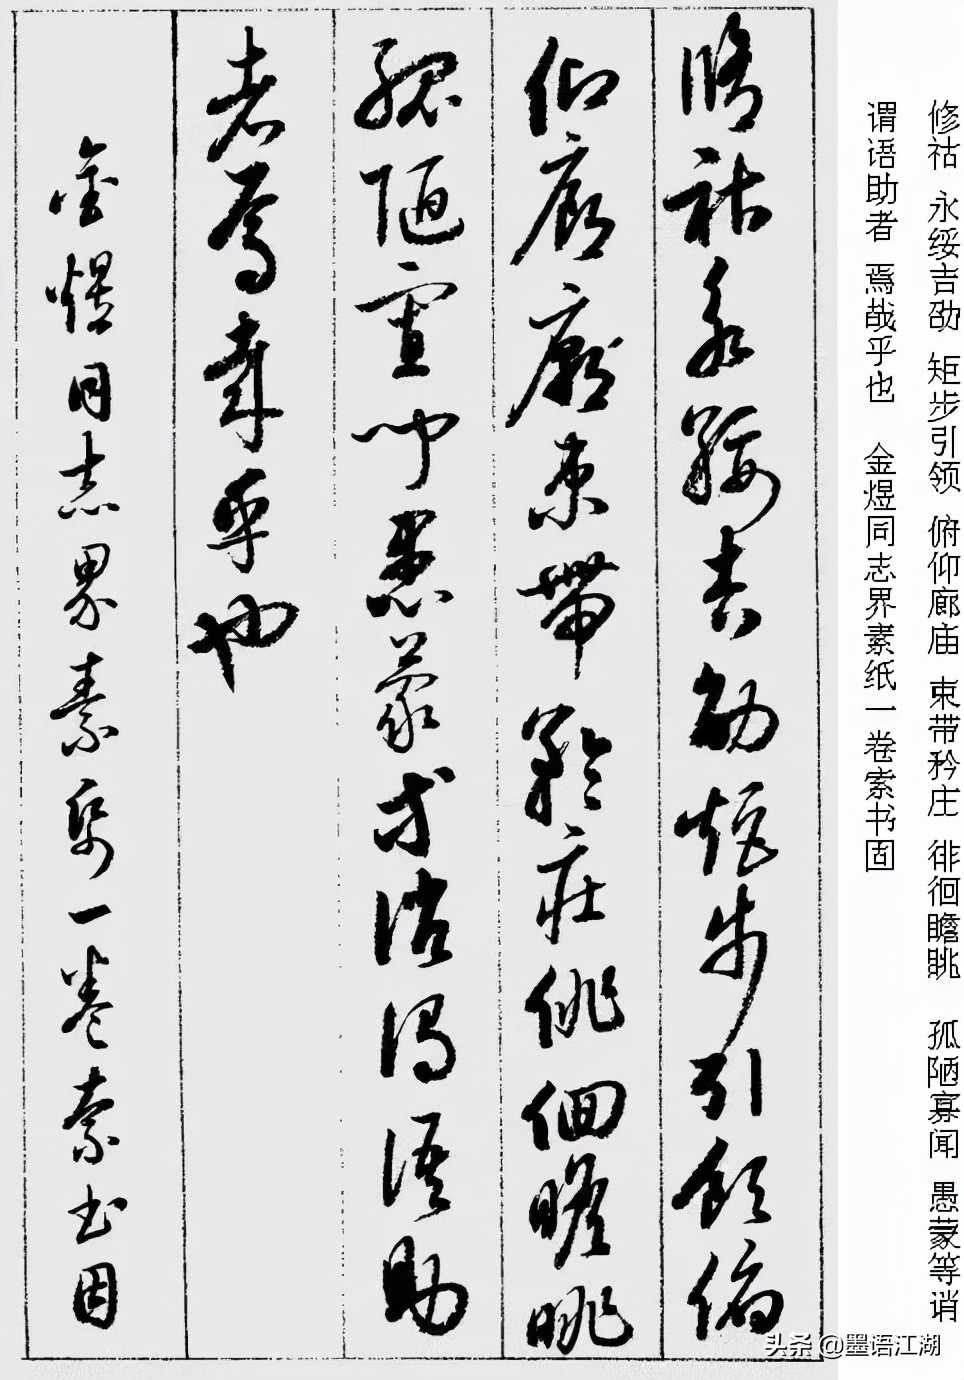 修祜 永绥吉劭 矩步引领 俯仰廊庙 束带矜庄 徘徊瞻眺 孤陋寡闻 愚蒙等诮
谓语助者 焉哉乎也 金煜同志界素纸一卷索书固
脩祜永綏吉劭矩步引領俯
仰廊廟束帶矜莊徘徊瞻眺
孤陋寡聞愚蒙等誚謂語助
者焉哉乎也
金煜同志界素紙一卷索书固
头条 @墨语江湖